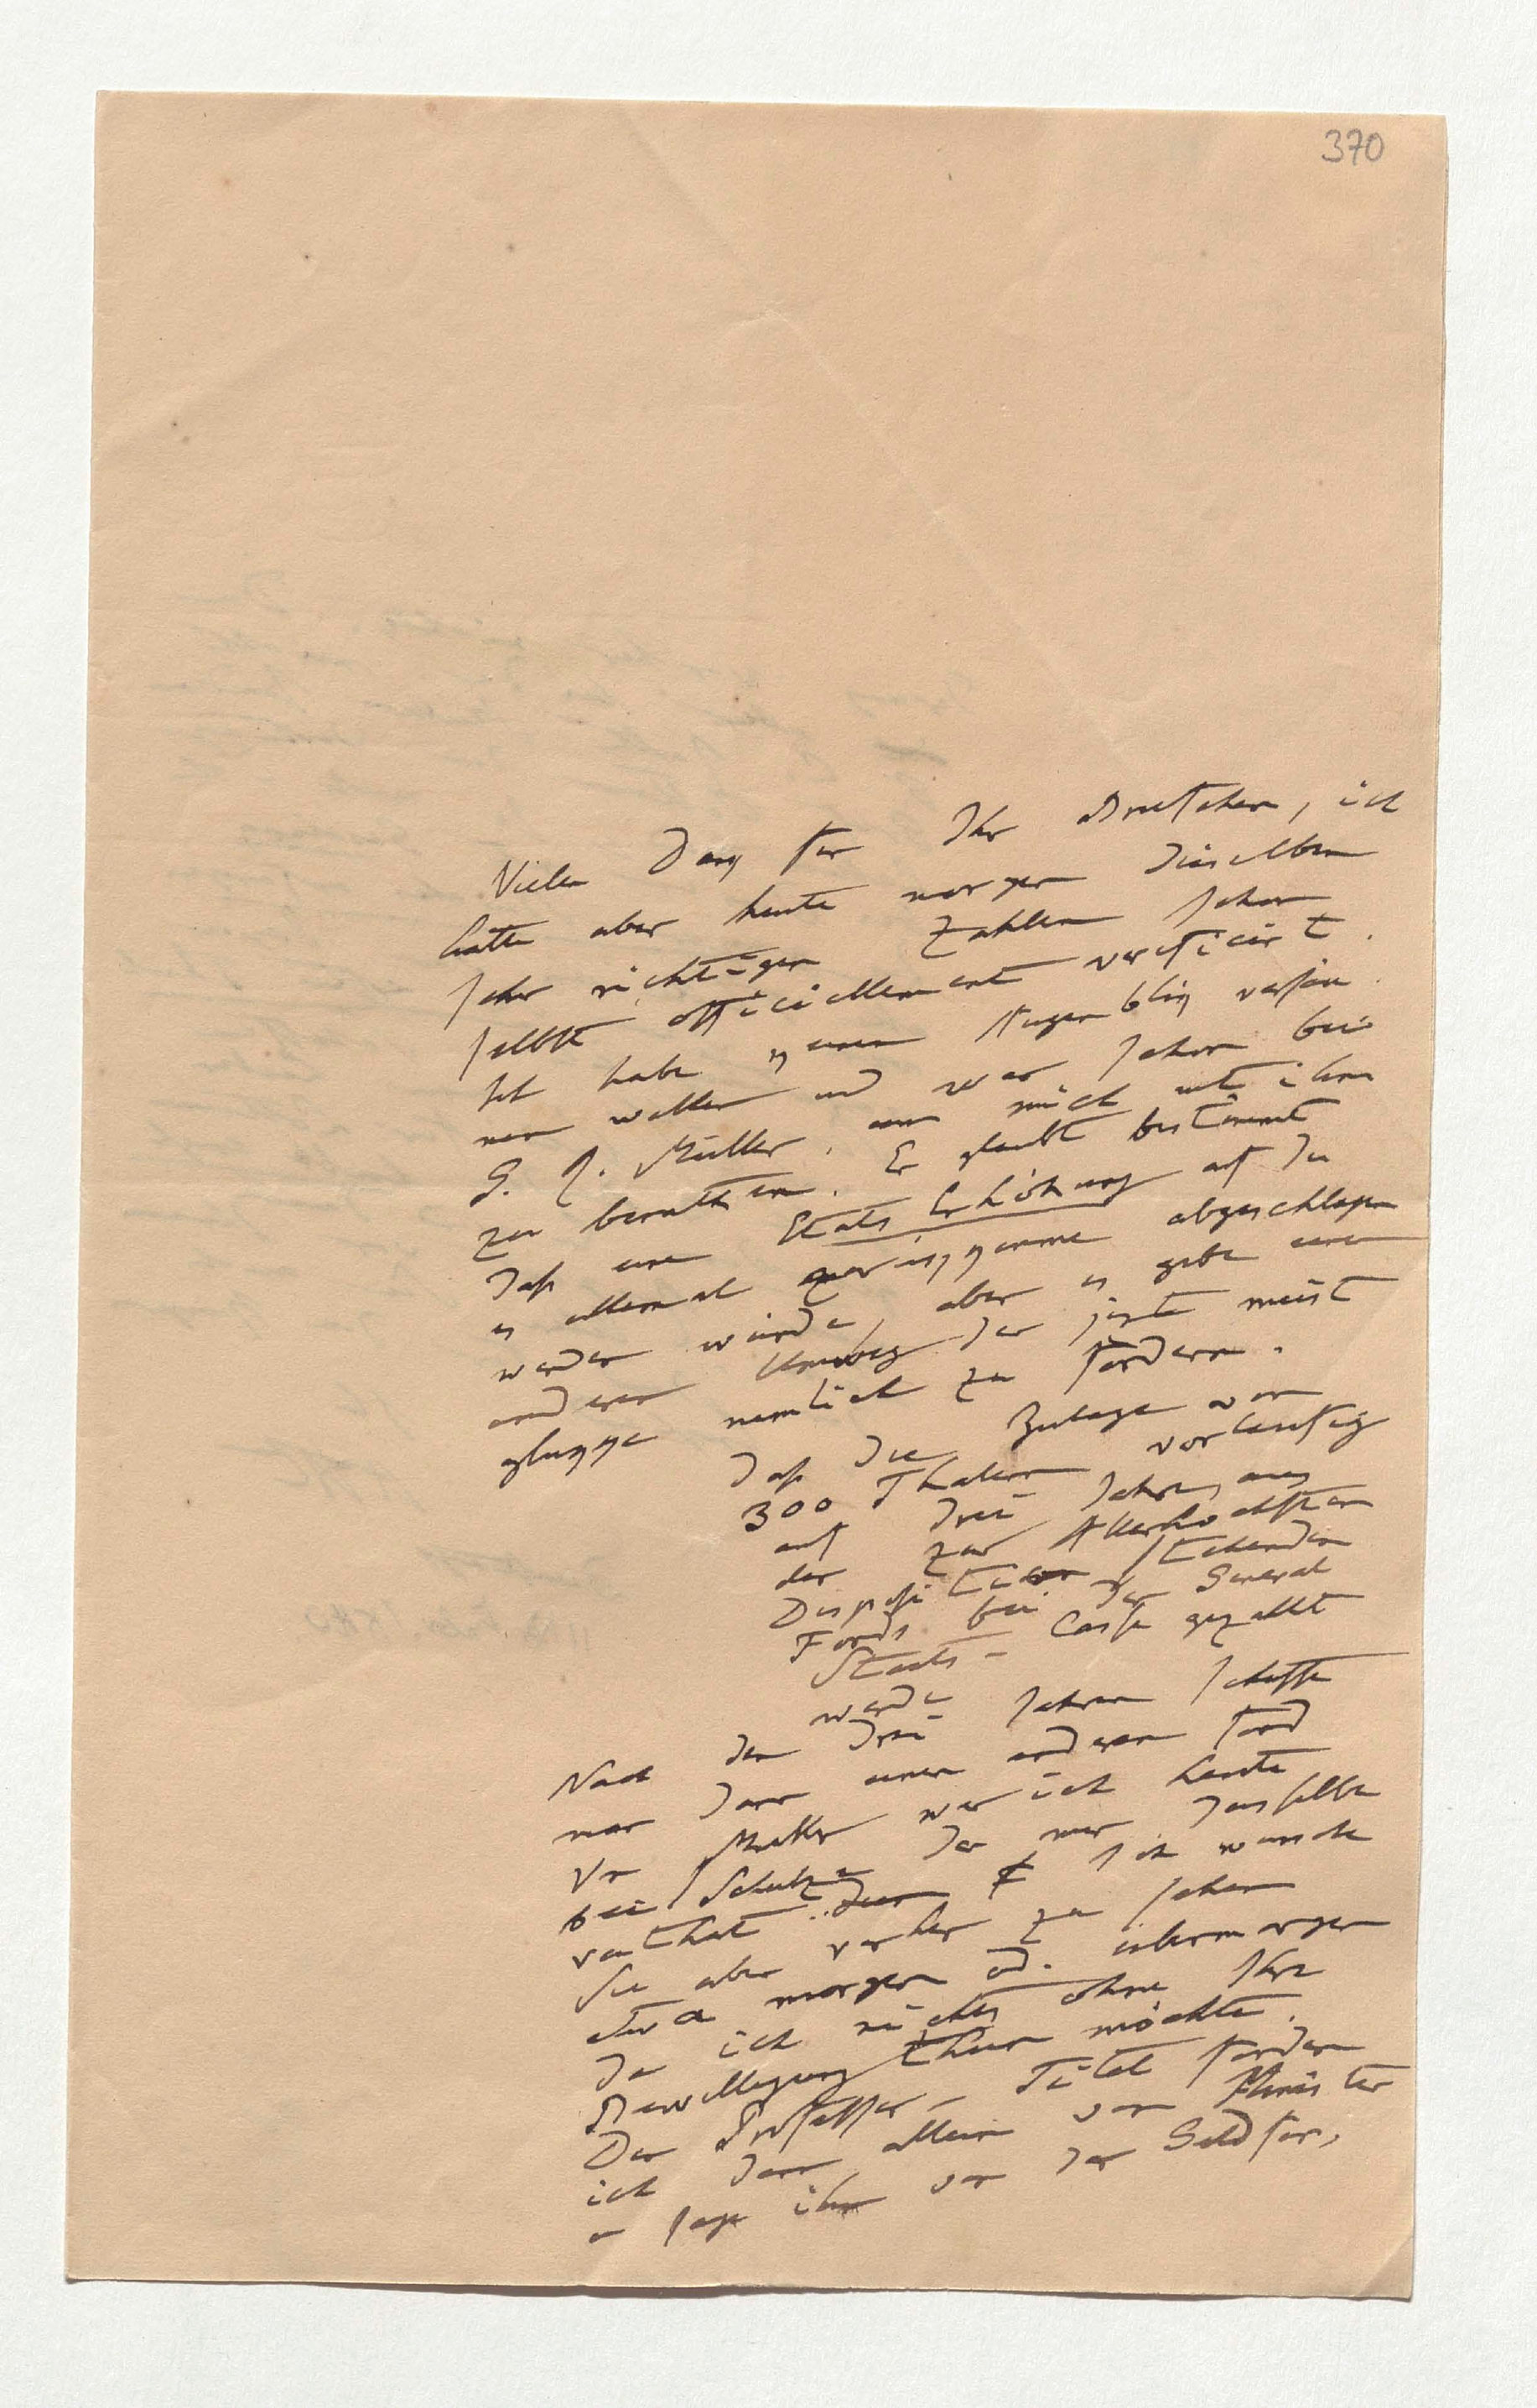 370
Vielen Dank für Ihr Briefchen, ich
hatte aber heute morgen dieselben
sehr richtigen Zahlen schon
selbst officiellement verificirt.
Ich habe keinen Augenblick versäu
men wollen und war schon bei
G. R. Müller, um mich mit ihm
zu berathen. Er glaubt bestimmt
daß eine Etats Erhöhung auf die
es allemal ankomme abgeschlagen
werden würde, aber es gebe einen
anderen Umweg der jezt meist
glukke nemlich zu fordern.
daß die Zulage von
300 Thalern vorläufig
auf drei Jahre, aus
der zur Allerhöchsten
Disposition stehenden
Fonds bei der General
Staats-Casse gezahlt
werde
Nach den drei Jahren schaffe
man dann einen anderen Fond
Vor Müller war ich heute
bei Schulze der mir dasselbe
rathet Ich wünsche
Sie aber vorher zu sehen
etwa morgen od. übermorgen
da ich nichts ohne Ihre
Bewilligung thun möchte.
Den Professor-Titel fordere
ich dann allein vom Minister
u sage ihm von der Geldfor,